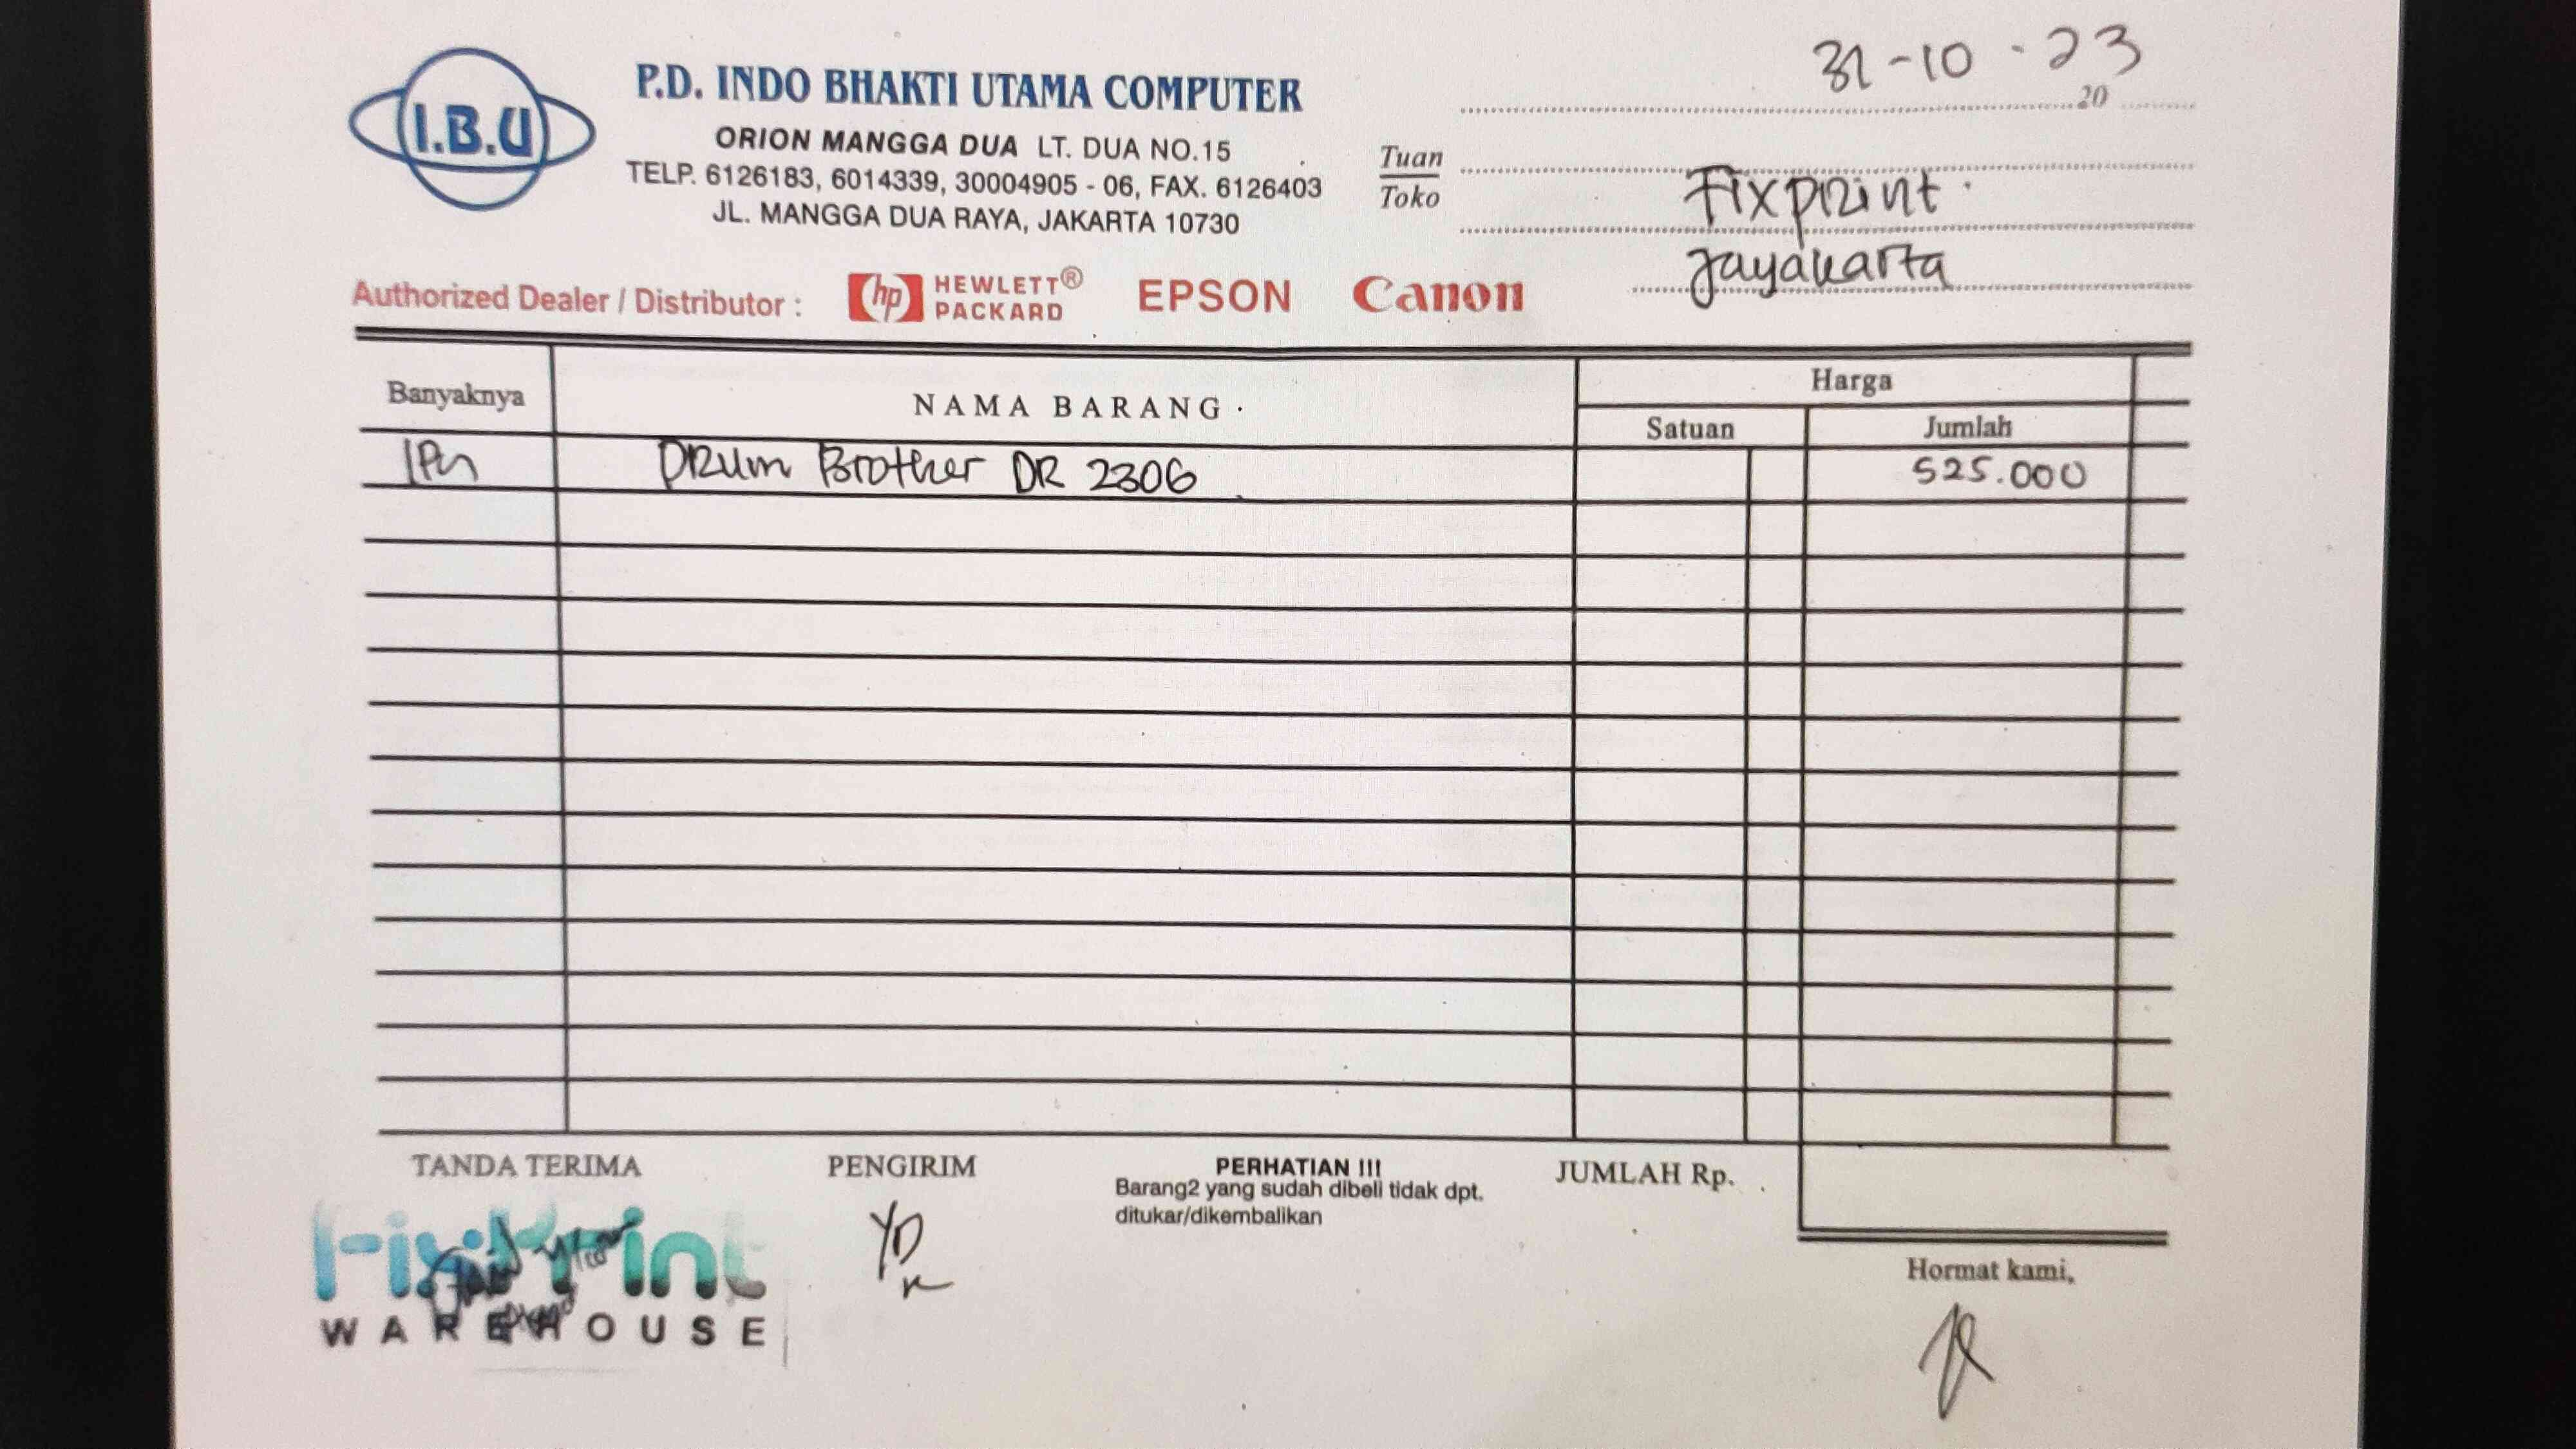 31-10-23
20
I.B.U
P.D. INDO BHAKTI UTAMA COMPUTER
ORION MANGGA DUA LT. DUA NO.15
TELP. 6126183, 6014339, 30004905 - 06, FAX. 6126403
JL. MANGGA DUA RAYA, JAKARTA 10730
Tuan
Toko
Fixprint
Jayakarta
Authorized Dealer / Distributor : hp HEWLETT® PACKARD EPSON Canon
Banyaknya NAMA BARANG Harga
Satuan Jumlah
DRUM Brother DR 2306 525.000
TANDA TERIMA PENGIRIM PERHATIAN !!! JUMLAH Rp.
Barang2 yang sudah dibeli tidak dpt.
ditukar/dikembalikan
FixPrint
WAREHOUSE
Hormat kami,